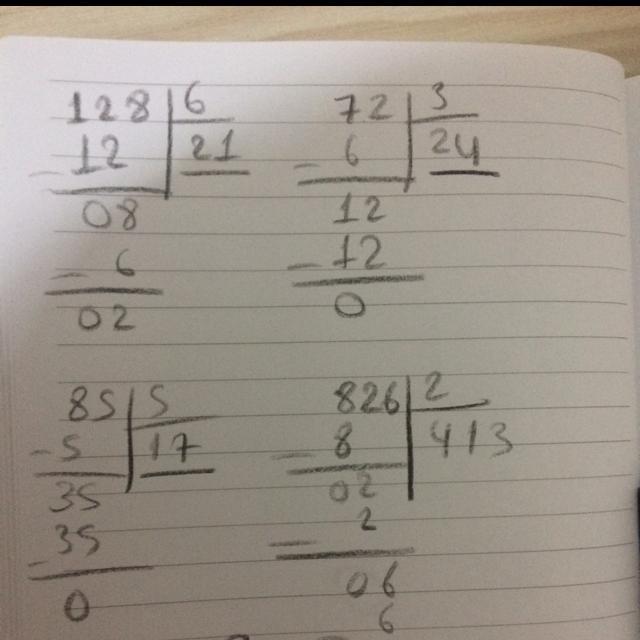 128 6
- 12 21
08
- 6
02
72 3
- 6 24
12
- 12
0
85 5
- 5 17
35
- 35
0
826 2
- 8 413
02
- 2
06
6